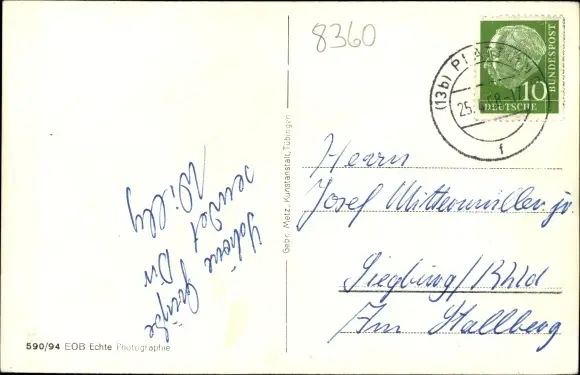 8360
DEUTSCHE
BUNDESPOST
10
(13b) Pl
25.
f
Schöne Grüße
sendet Dir
Willy
Gebr. Metz, Kunstanstalt, Tübingen
Herrn
Josef Mittenzwiller jr.
Siegburg/Rhld
Am Stallberg
590/94 EOB Echte Photographie